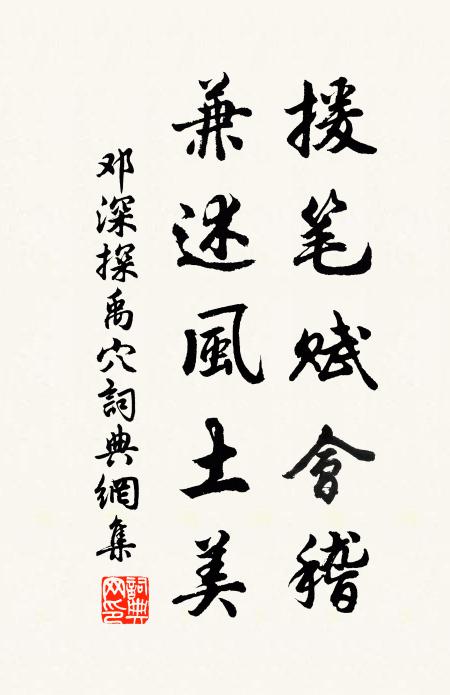 援笔赋會稽
兼述風土美
邓深探禹穴詞典網集
詞典网印